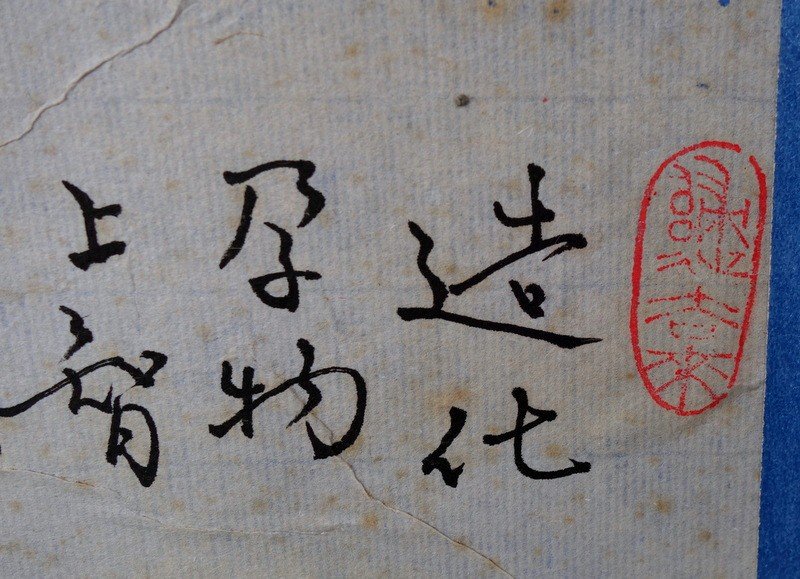 造化
孕物
上智